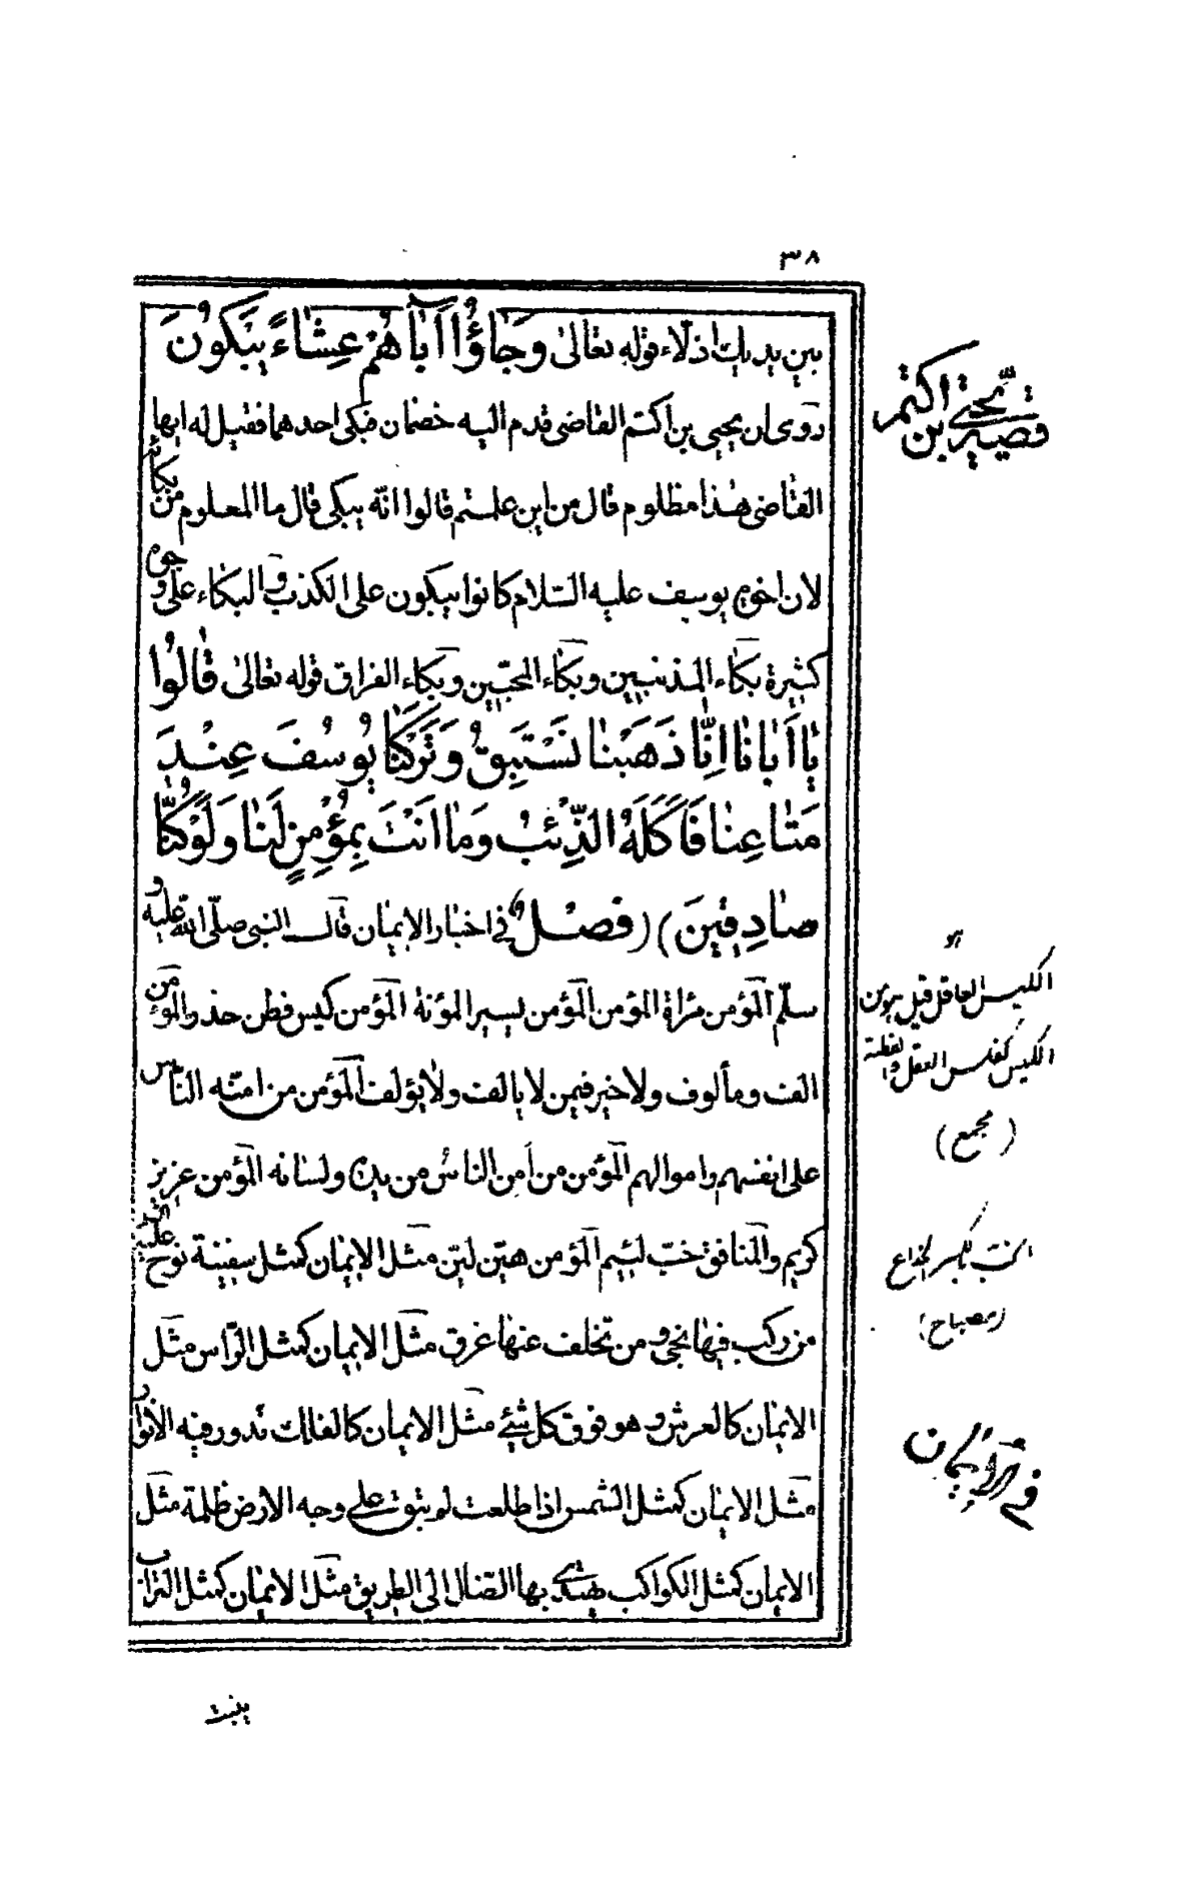 ٣٨
بين يديك اذلاء قوله تعالى وَجَاؤُا اَبَاهُمْ عِشَاءً يَبْكُونَ
روى ان يحيى بن اكثم القاضى قدم اليه خصمان فبكى احدهما فقيل له ايها
القاضى هذا مظلوم قال من اين علمتم قالوا انه يبكى قال ما المعلوم من بكائه
لان اخوة يوسف عليه السلام كانوا يبكون على الكذب والبكاء على وجوه
كثيرة بكاء المذنبين وبكاء المحبّين وبكاء الفراق قوله تعالى قَالُوا
يَا اَبَانَا اِنَّا ذَهَبْنَا نَسْتَبِقُ وَتَرَكْنَا يُوسُفَ عِنْدَ
مَتَاعِنَا فَاَكَلَهُ الذِّئْبُ وَمَا اَنْتَ بِمُؤْمِنٍ لَنَا وَلَوْ كُنَّا
صَادِقِينَ) (فصل) فى اخبار الايمان قال النبى صلّى الله عليه و
سلّم المؤمن مرآة المؤمن المؤمن يسير المؤنة المؤمن كيس فطن حذر المؤمن
الف ومألوف ولا خير فيمن لا يالف ولا يؤلف المؤمن من امنه الناس
على انفسهم واموالهم المؤمن من اَمِن الناسُ من يده ولسانه المؤمن عزيز
كريم والمنافق خبّ لئيم المؤمن هيّن ليّن مثل الايمان كمثل سفينة نوح عليه
من ركب فيها نجى ومن تخلف عنها غرق مثل الايمان كمثل الرّاس مثل
الايمان كالعرش وهو فوق كل شئ مثل الايمان كالفلك تدور فيه الانوار
مثل الايمان كمثل الشمس اذا طلعت لم يبق على وجه الارض ظلمة مثل
الايمان كمثل الكواكب يهتدى بها الضال الى الطريق مثل الايمان كمثل التراب
ينبت
قصة يحيى
بن اكثم
الكيس العاقل قيل هو من
الكيس كفلس العقل والفطنة
(مجمع)
الخب بالكسر الخداع
(مصباح)
فى الايمان